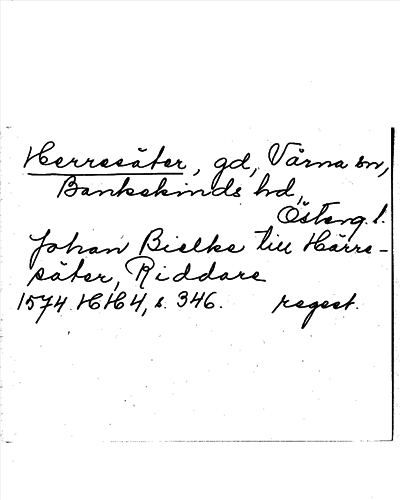 Herresäter, gd, Värna sn,
Bankekinds hd,
Österg. l.
Johan Bielke till Härre-
säter, Riddare
1574. HH4, s. 346. regest.